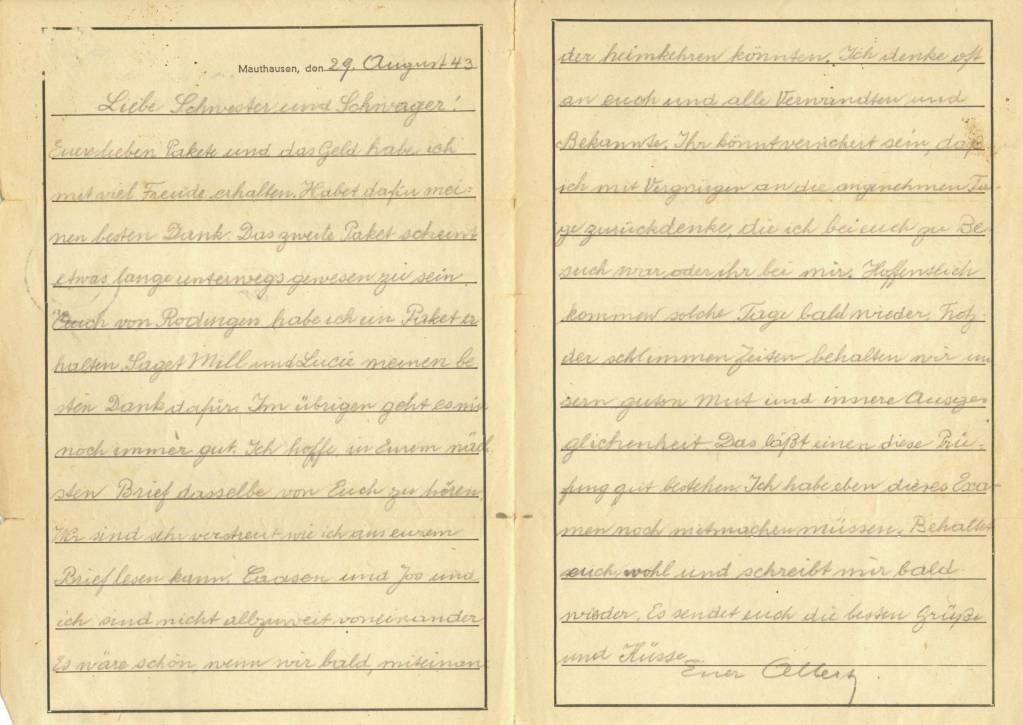 Mauthausen, den 29. August 43
Liebe Schwester und Schwager!
Eure lieben Pakete und das Geld habe ich
mit viel Freude erhalten. Habet dafür mei=
nen besten Dank. Das zweite Paket scheint
etwas lange unterwegs gewesen zu sein.
Auch von Rodingen habe ich ein Paket er
halten. Saget Mill und Lucie meinen be
sten Dank dafür. Im übrigen geht es mir
noch immer gut. Ich hoffe, in Eurem näch
sten Brief dasselbe von Euch zu hören.
Wir sind sehr verstreut, wie ich aus eurem
Brief lesen kann. Caasen und Jos und
ich sind nicht allzuweit voneinander
Es wäre schön, wenn wir bald, miteinan
der heimkehren könnten. Ich denke oft
an euch und alle Verwandten und
Bekannte. Ihr könnt versichert sein, daß
ich mit Vergnügen an die angenehmen Ta-
ge zurückdenke, die ich bei euch zu Be
such war, oder ihr bei mir. Hoffentlich
kommen solche Tage bald wieder. Trotz
der schlimmen Zeiten behalten wir un
sern guten Mut und innere Ausge
glichenheit. Das läßt einen diese Prü-
fung gut bestehen. Ich habe eben dieses Exa-
men noch mitmachen müssen. Behaltet
euch wohl und schreibt mir bald
wieder. Es sendet euch die besten Grüße
und Küsse
Euer Albert